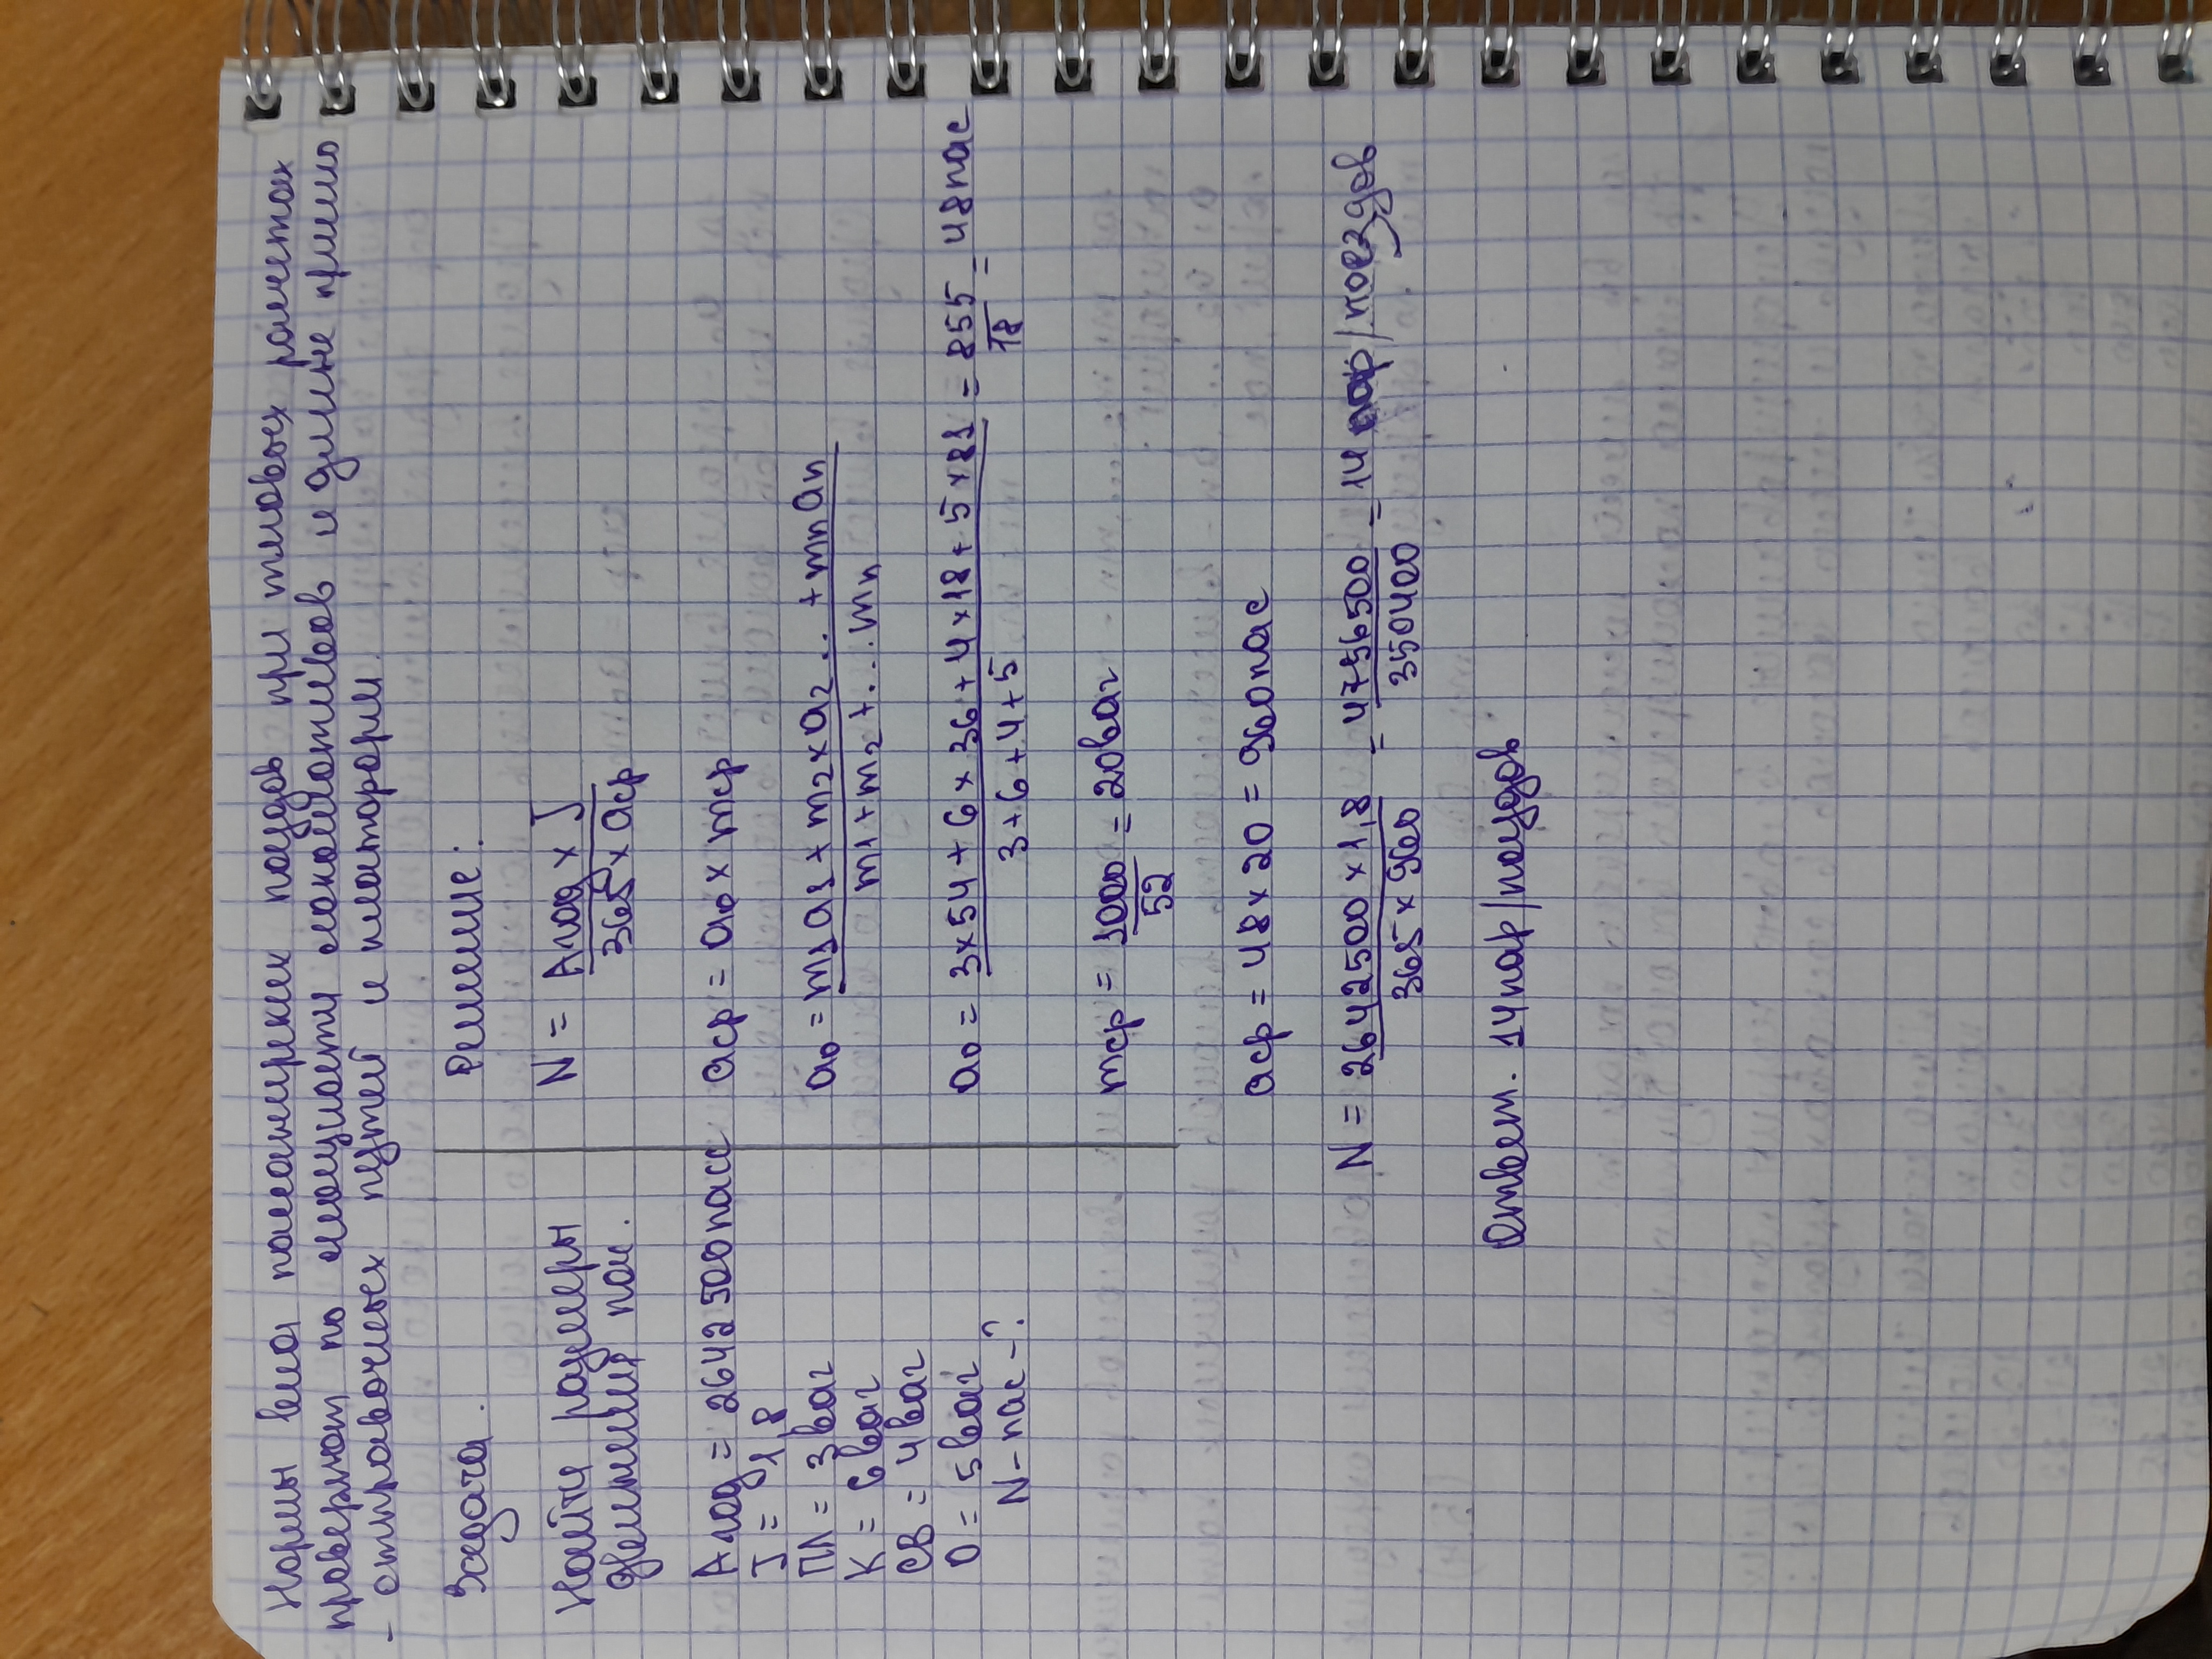 Нормы веса пассажирских поездов при тяговых расчетах
проверяют по мощности локомотивов и длине приемо
- отправочных путей и платформ.
Задача.
Найти размеры
движения пас.
Aгод = 2642500 пасс
J = 1,8
ПЛ = 3 ваг
К = 6 ваг
СВ = 4 ваг
О = 5 ваг
N - пас - ?
Решение:
N = Aгод x J / 365 x aср
aср = aо x mср
aо = m1a1 + m2 x a2 ... + mnan / m1 + m2 + ... mn
aо = 3x54 + 6 x 36 + 4 x 18 + 5 x 81 / 3 + 6 + 4 + 5 = 855 / 18 = 48 пас
mср = 1000 / 52 = 20 ваг
aср = 48 x 20 = 960 пас
N = 2642500 x 1,8 / 365 x 960 = 4756500 / 350400 = 14 пар/поездов
Ответ. 14 пар/поездов